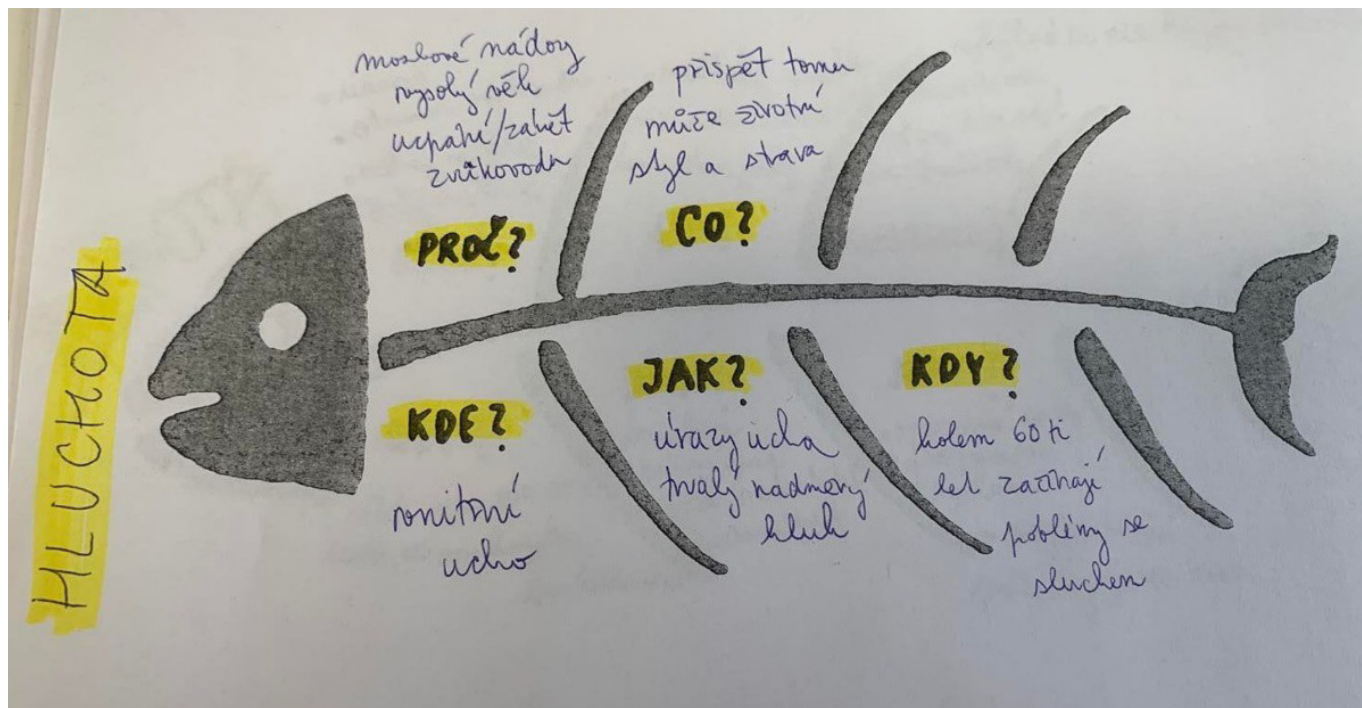 HLUCHOTA
mozkové nádory
vysoký věk
ucpání/zánět
zvukovodu
PROČ?
přispět tomu
může životní
styl a strava
CO?
KDE?
vnitřní
ucho
JAK?
úrazy ucha
trvalý nadměrný
hluk
KDY?
kolem 60ti
let začínají
problémy se
sluchem